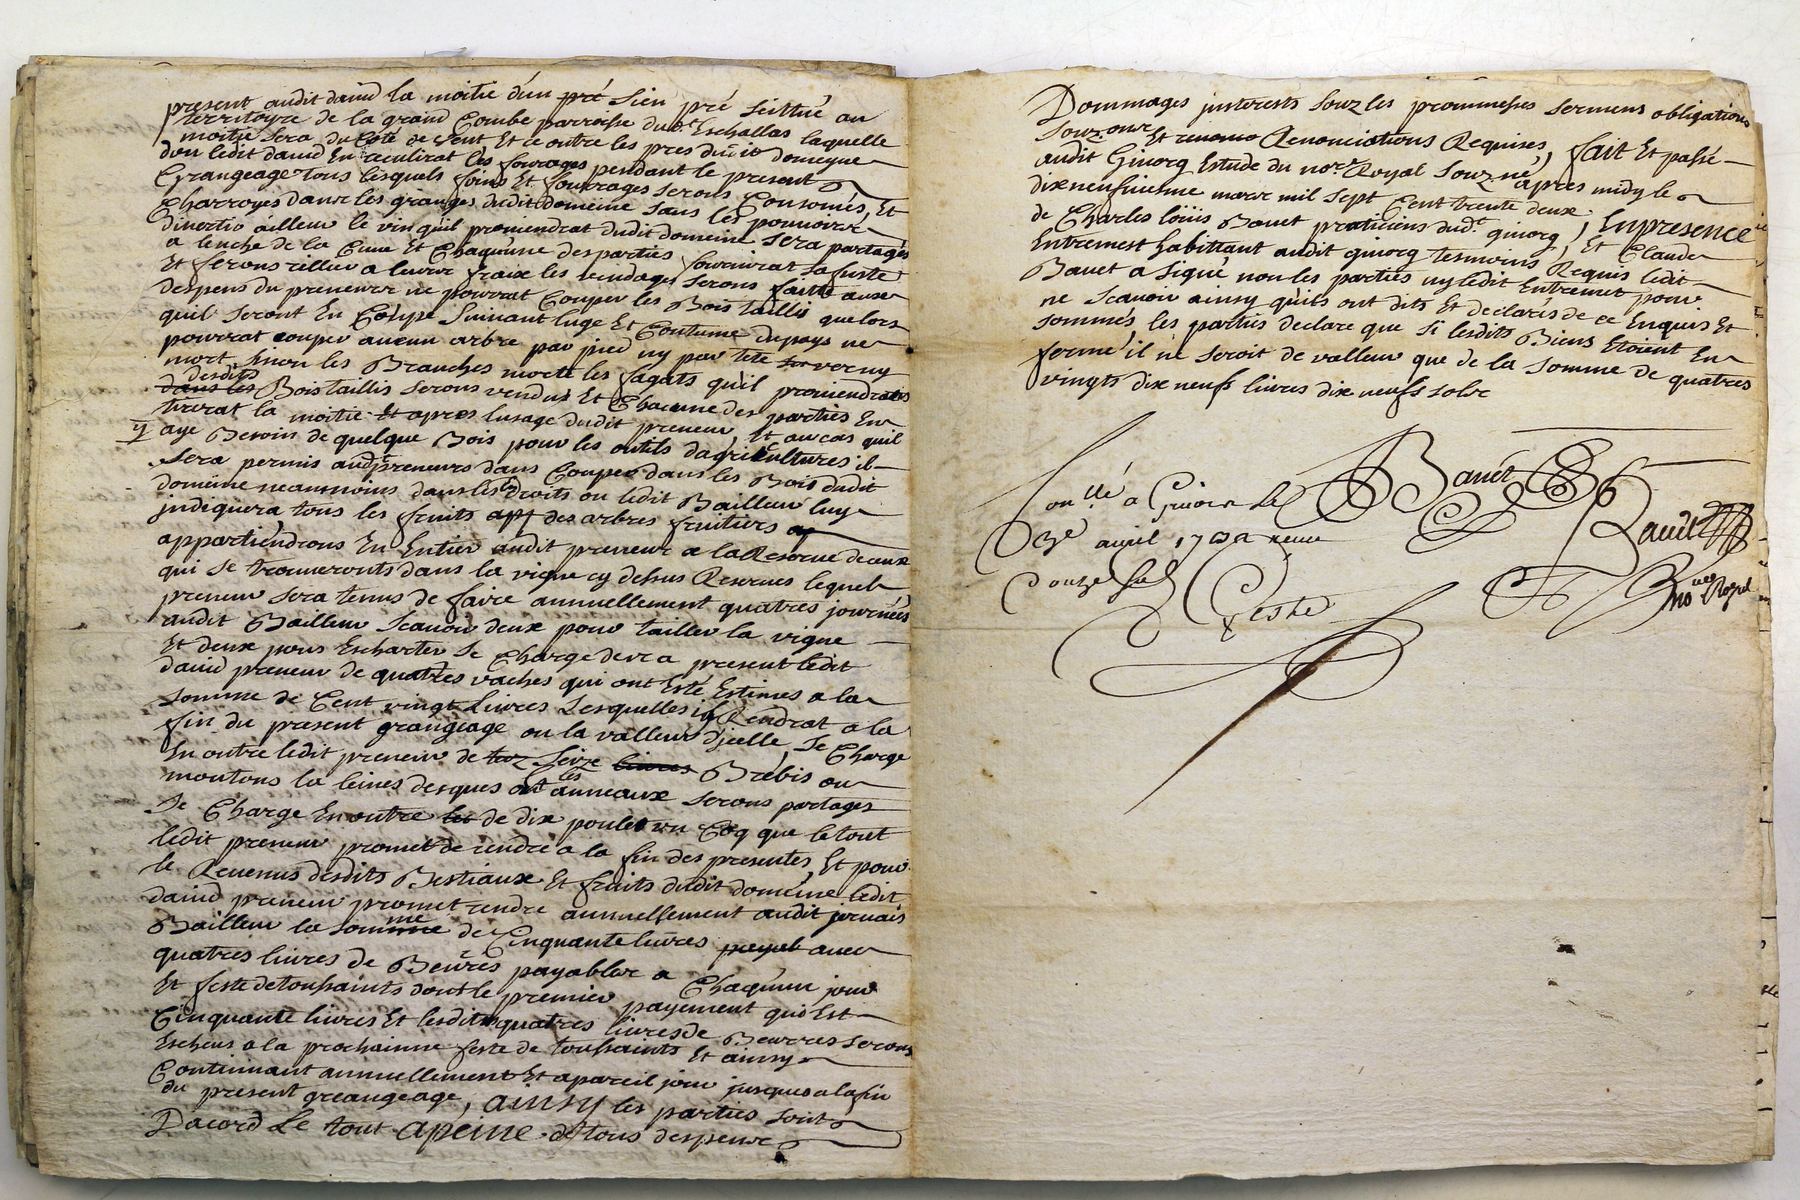 present audit david la moitié d'un pré sien pré scittué au
territoyre de la grand Combe parroisse dud.t Eschallas laquelle
moitié sera du Coté de vent Et ce outre les pres dudit domeyne
don ledit david En Ceulirat les fourages pendant le present
Grangeage tous lesquels foins Et fourrages serons Consomés, Et
Charroyes dans les granges dudit domeine sans les pouvoir
divertir ailleur le vin quil proviendrat dudit domeine sera partagés
a lenche de la Cuve Et Chaqu'une des parties fournirat sa juste
Et ferons rellier a leurs fraix les vendages serons faitte aux
despens du preneur ne pourrat Couper les Bois taillis que lors
quil seront En Coupe Suivant luge Et Coutume du pays ne
pourrat couper aucun arbre par pied ny par tete verny
mort sinon les Branches morte les fagats qu'il proviendrat
desdits Bois taillis serons vendus Et Chacune des parties En
tirerat la moitié Et apres lusage dudit preneur, Et au cas quil
aye Besoins de quelque Bois pour les outils dagricultures il
sera permis audit preneurs dans Couper dans les Bois dudit
domeine neanmoins dans les Droits ou ledit Bailleur luy
jndiquera tous les fruits des arbres fruitiers
appartiendrons En Entier audit preneur a la Reserve de ceux
qui se trouveronts dans la vigne cy dessus Reserves lequel
preneur sera tenus de faire annuellement quatres journées
audit Bailleur Scavoir deux pour tailler la vigne
Et deux pour Escharter se Charge a present ledit
david preneur de quattes vaches qui ont Esté Estimes a la
somme de Cent vingt Livres Lesquelles il Rendrat a la
fin du present grangeage ou la valleur d'jcelle, Se Charge
En outre ledit preneur de seize livres Brebis ou
moutons la leines desques Et les anneaux serons partages
se Charge En outre les de dix poules un Coq que le tout
ledit preneur promet de rendre a la fin des presentes, Et pour
le Revenus desdits Bestiaux Et fruits dudit domeine ledit
david preneur promet rendre annuellement audit jornais
Bailleur la somme de Cinquante livres payab avec
quatres livres de Beures payables a Chaqu'un jour
Et feste de toussaints dont le premier payement qui Est
Cinquante livres Et lesdits quatres livres de Beurres serons
Escheus a la prochainne feste de toussaints Et ainsy
Continuant annuellement Et apareil jour jusques a la fin
du present greangeage, ainsy les parties sont
Dacord Le tout apeine de tous despens
Dommages jnterests souz les prommesses sermens obligations
Et Renonciations Requises, fait Et passé
audit Givorq Estude du no.re Royal souz.né apres midy le
dixneufvienne mars mil sept Cent trente deux, En presence
de Charles loüis Bauet praticiens dud.t givorq, Et Claude
Entremest habittant audit givorq tesmoins Requis ledit
Bauet a signé non les parties ny ledit Entremet pour
ne Scavoir ainsy quils ont dits Et declarés de ce Enquis Et
sommés, les parties declare que si lesdits Biens Etoient En
ferme il ne seroit de valleur que de la somme de quatres
vingts dix neuf livres dix neufs sols
Bauet
Con.llé a Givors le
3.e avril 1732
Douze sols
Geste
Bauet
no.re Royal